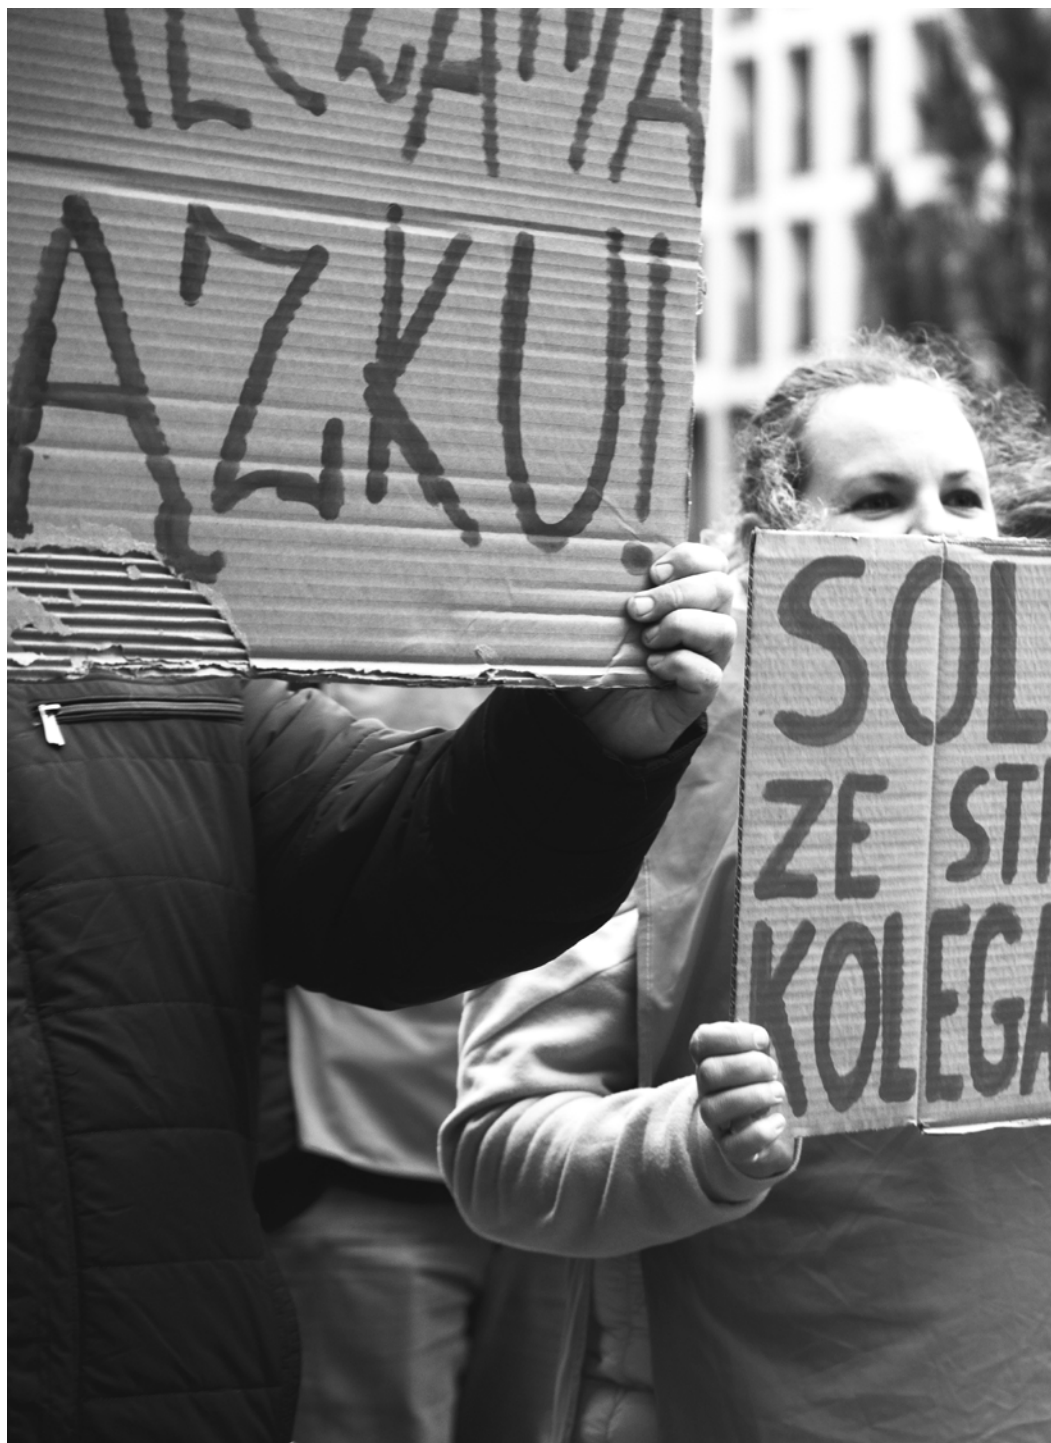 ĄZKU!
SOL
ZE STR
KOLEGA